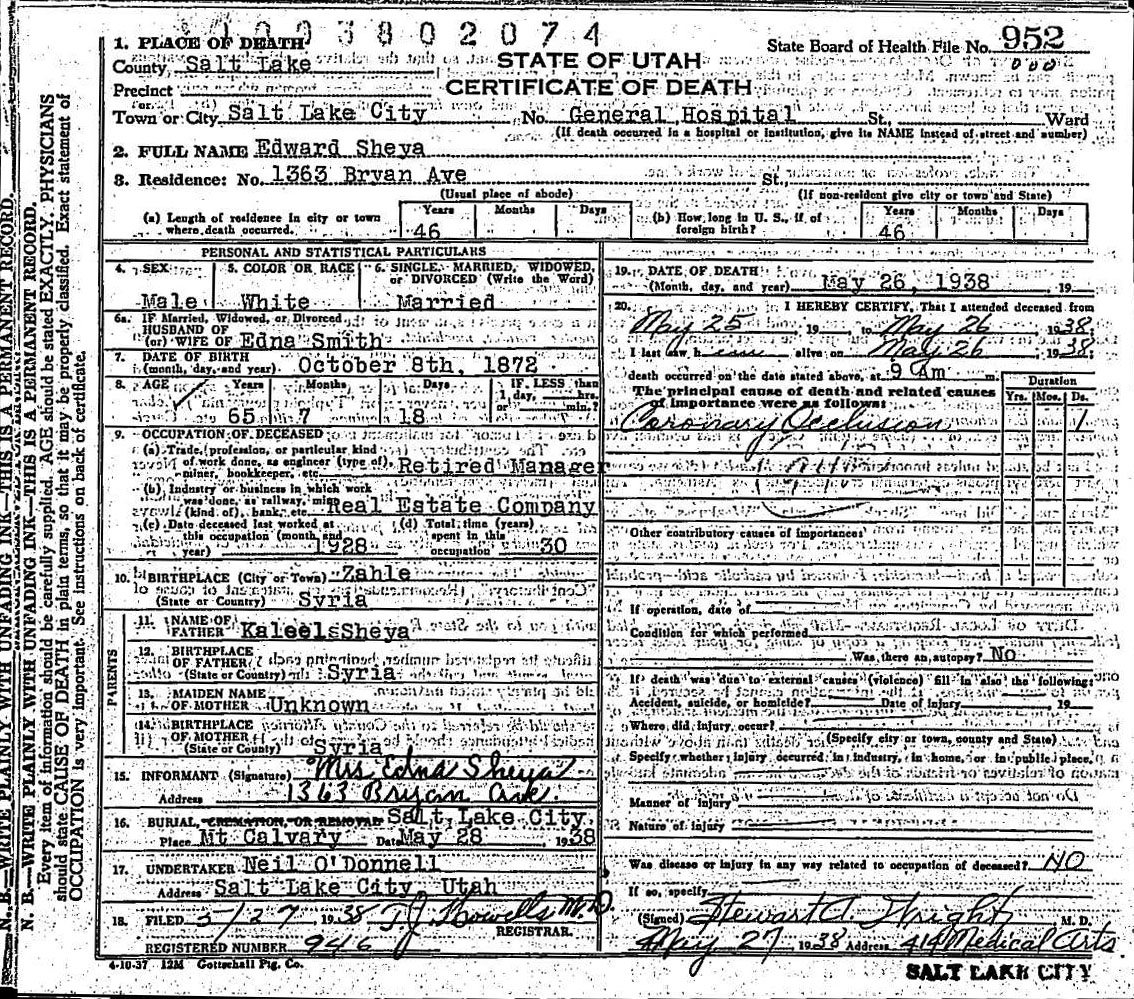 1003802074
1. PLACE OF DEATH
County Salt Lake
Precinct
Town or City Salt Lake City No. General Hospital St., Ward
(If death occurred in a hospital or institution, give its NAME instead of street and number)
STATE OF UTAH
CERTIFICATE OF DEATH
State Board of Health File No. 952
000
2. FULL NAME Edward Sheya
3. Residence: No. 1363 Bryan Ave St.,
(Usual place of abode) (If non-resident give city or town and State)
(a) Length of residence in city or town where death occurred. Years 46 Months Days
(b) How long in U. S., if of foreign birth? Years 46 Months Days
PERSONAL AND STATISTICAL PARTICULARS
4. SEX Male
5. COLOR OR RACE White
6. SINGLE, MARRIED, WIDOWED, or DIVORCED (Write the Word) Married
6a. IF Married, Widowed, or Divorced
HUSBAND OF
(or) WIFE OF Edna Smith
7. DATE OF BIRTH
(month, day, and year) October 8th, 1872
8. AGE Years 65 Months 7 Days 18 IF LESS than 1 day, hrs. or min.?
9. OCCUPATION OF DECEASED
(a) Trade, profession, or particular kind
of work done, as engineer (type of),
miner, bookkeeper, etc. Retired Manager
(b) Industry or business in which work
was done, as railway, mine
(kind of), bank, etc. Real Estate Company
(c) Date deceased last worked at
this occupation (month and
year) 1928
(d) Total time (years)
spent in this
occupation 30
10. BIRTHPLACE (City or Town) Zahle
(State or Country) Syria
PARENTS
11. NAME OF
FATHER Kaleel Sheya
12. BIRTHPLACE
OF FATHER
(State or Country) Syria
13. MAIDEN NAME
OF MOTHER Unknown
14. BIRTHPLACE
OF MOTHER
(State or County) Syria
15. INFORMANT (Signature) Mrs Edna Sheya
Address 1363 Bryan Ave.
16. BURIAL, CREMATION, OR REMOVAL Salt Lake City,
Place Mt Calvary Date May 28 1938
17. UNDERTAKER Neil O'Donnell
Address Salt Lake City, Utah
18. FILED 5/27, 1938 T. J. Howells M.D.
REGISTRAR.
REGISTERED NUMBER 946
4-10-37 12M Gottschall Ptg. Co.
19. DATE OF DEATH
(Month, day, and year) May 26, 1938 19
20. I HEREBY CERTIFY, That I attended deceased from
May 25, 19 to May 26, 1938;
I last saw him alive on May 26, 1938;
death occurred on the date stated above, at 9 Am m.
The principal cause of death and related causes
of importance were as follows:
Duration
Yrs. Mos. Ds.
Coronary Occlusion 1
Other contributory causes of importance:
If operation, date of
Condition for which performed
Was there an autopsy? No
If death was due to external causes (violence) fill in also the following:
Accident, suicide, or homicide? Date of injury 19
Where did injury occur?
(Specify city or town, county and State)
Specify whether injury occurred in industry, in home, or in public place.
Manner of injury
Nature of injury
Was disease or injury in any way related to occupation of deceased? NO
If so, specify
(Signed) Stewart A. Wright M. D.
May 27 1938 Address 414 Medical Arts
SALT LAKE CITY
N. B.—WRITE PLAINLY WITH UNFADING INK—THIS IS A PERMANENT RECORD.
N. B.—WRITE PLAINLY WITH UNFADING INK—THIS IS A PERMANENT RECORD.
Every item of information should be carefully supplied. AGE should be stated EXACTLY. PHYSICIANS
should state CAUSE OF DEATH in plain terms, so that it may be properly classified. Exact statement of
OCCUPATION is very important. See instructions on back of certificate.